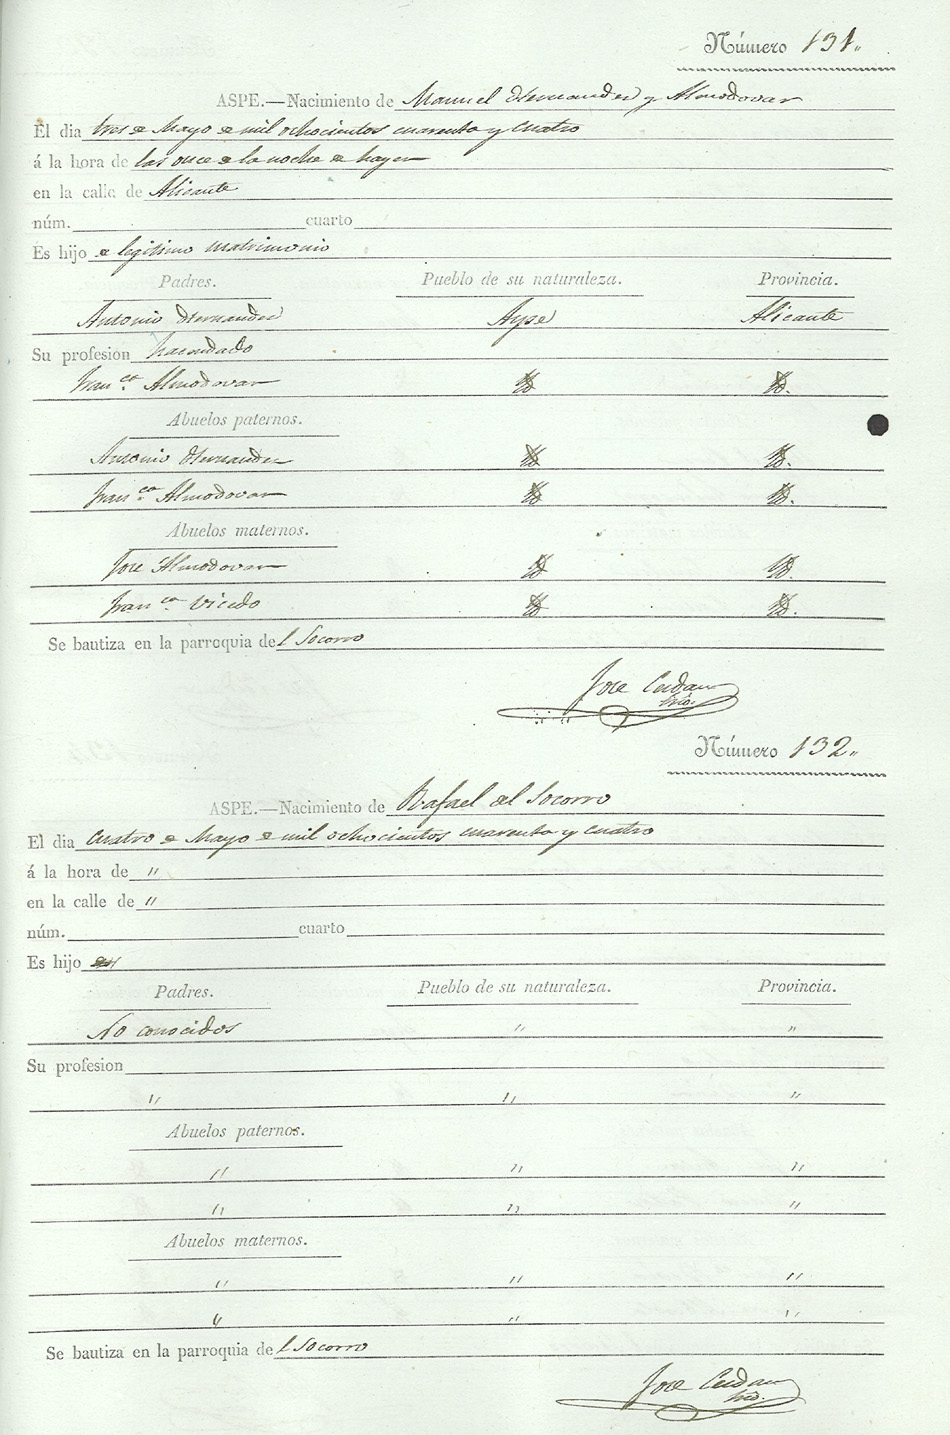 Número 131.
ASPE.—Nacimiento de Manuel Hernandez y Almodovar
El dia tres de Mayo de mil ochocientos cuarenta y cuatro
á la hora de las once de la noche de hayer
en la calle de Alicante
núm. cuarto
Es hijo de legitimo matrimonio
Padres. Pueblo de su naturaleza. Provincia.
Antonio Hernandez Aspe Alicante
Su profesion hacendado
Fran.ca Almodovar Id Id.
Abuelos paternos.
Antonio Hernandez Id Id.
Fran.ca Almodovar Id Id.
Abuelos maternos.
Jose Almodovar Id Id.
Fran.ca Vicedo Id Id.
Se bautiza en la parroquia del Socorro
Jose Cerdan
Número 132.
ASPE.—Nacimiento de Rafael del Socorro
El dia Cuatro de Mayo de mil ochocientos cuarenta y cuatro
á la hora de "
en la calle de "
núm. cuarto
Es hijo
Padres. Pueblo de su naturaleza. Provincia.
No conocidos " "
Su profesion
" " "
Abuelos paternos.
" " "
" " "
Abuelos maternos.
" " "
" " "
Se bautiza en la parroquia del Socorro
Jose Cerdan